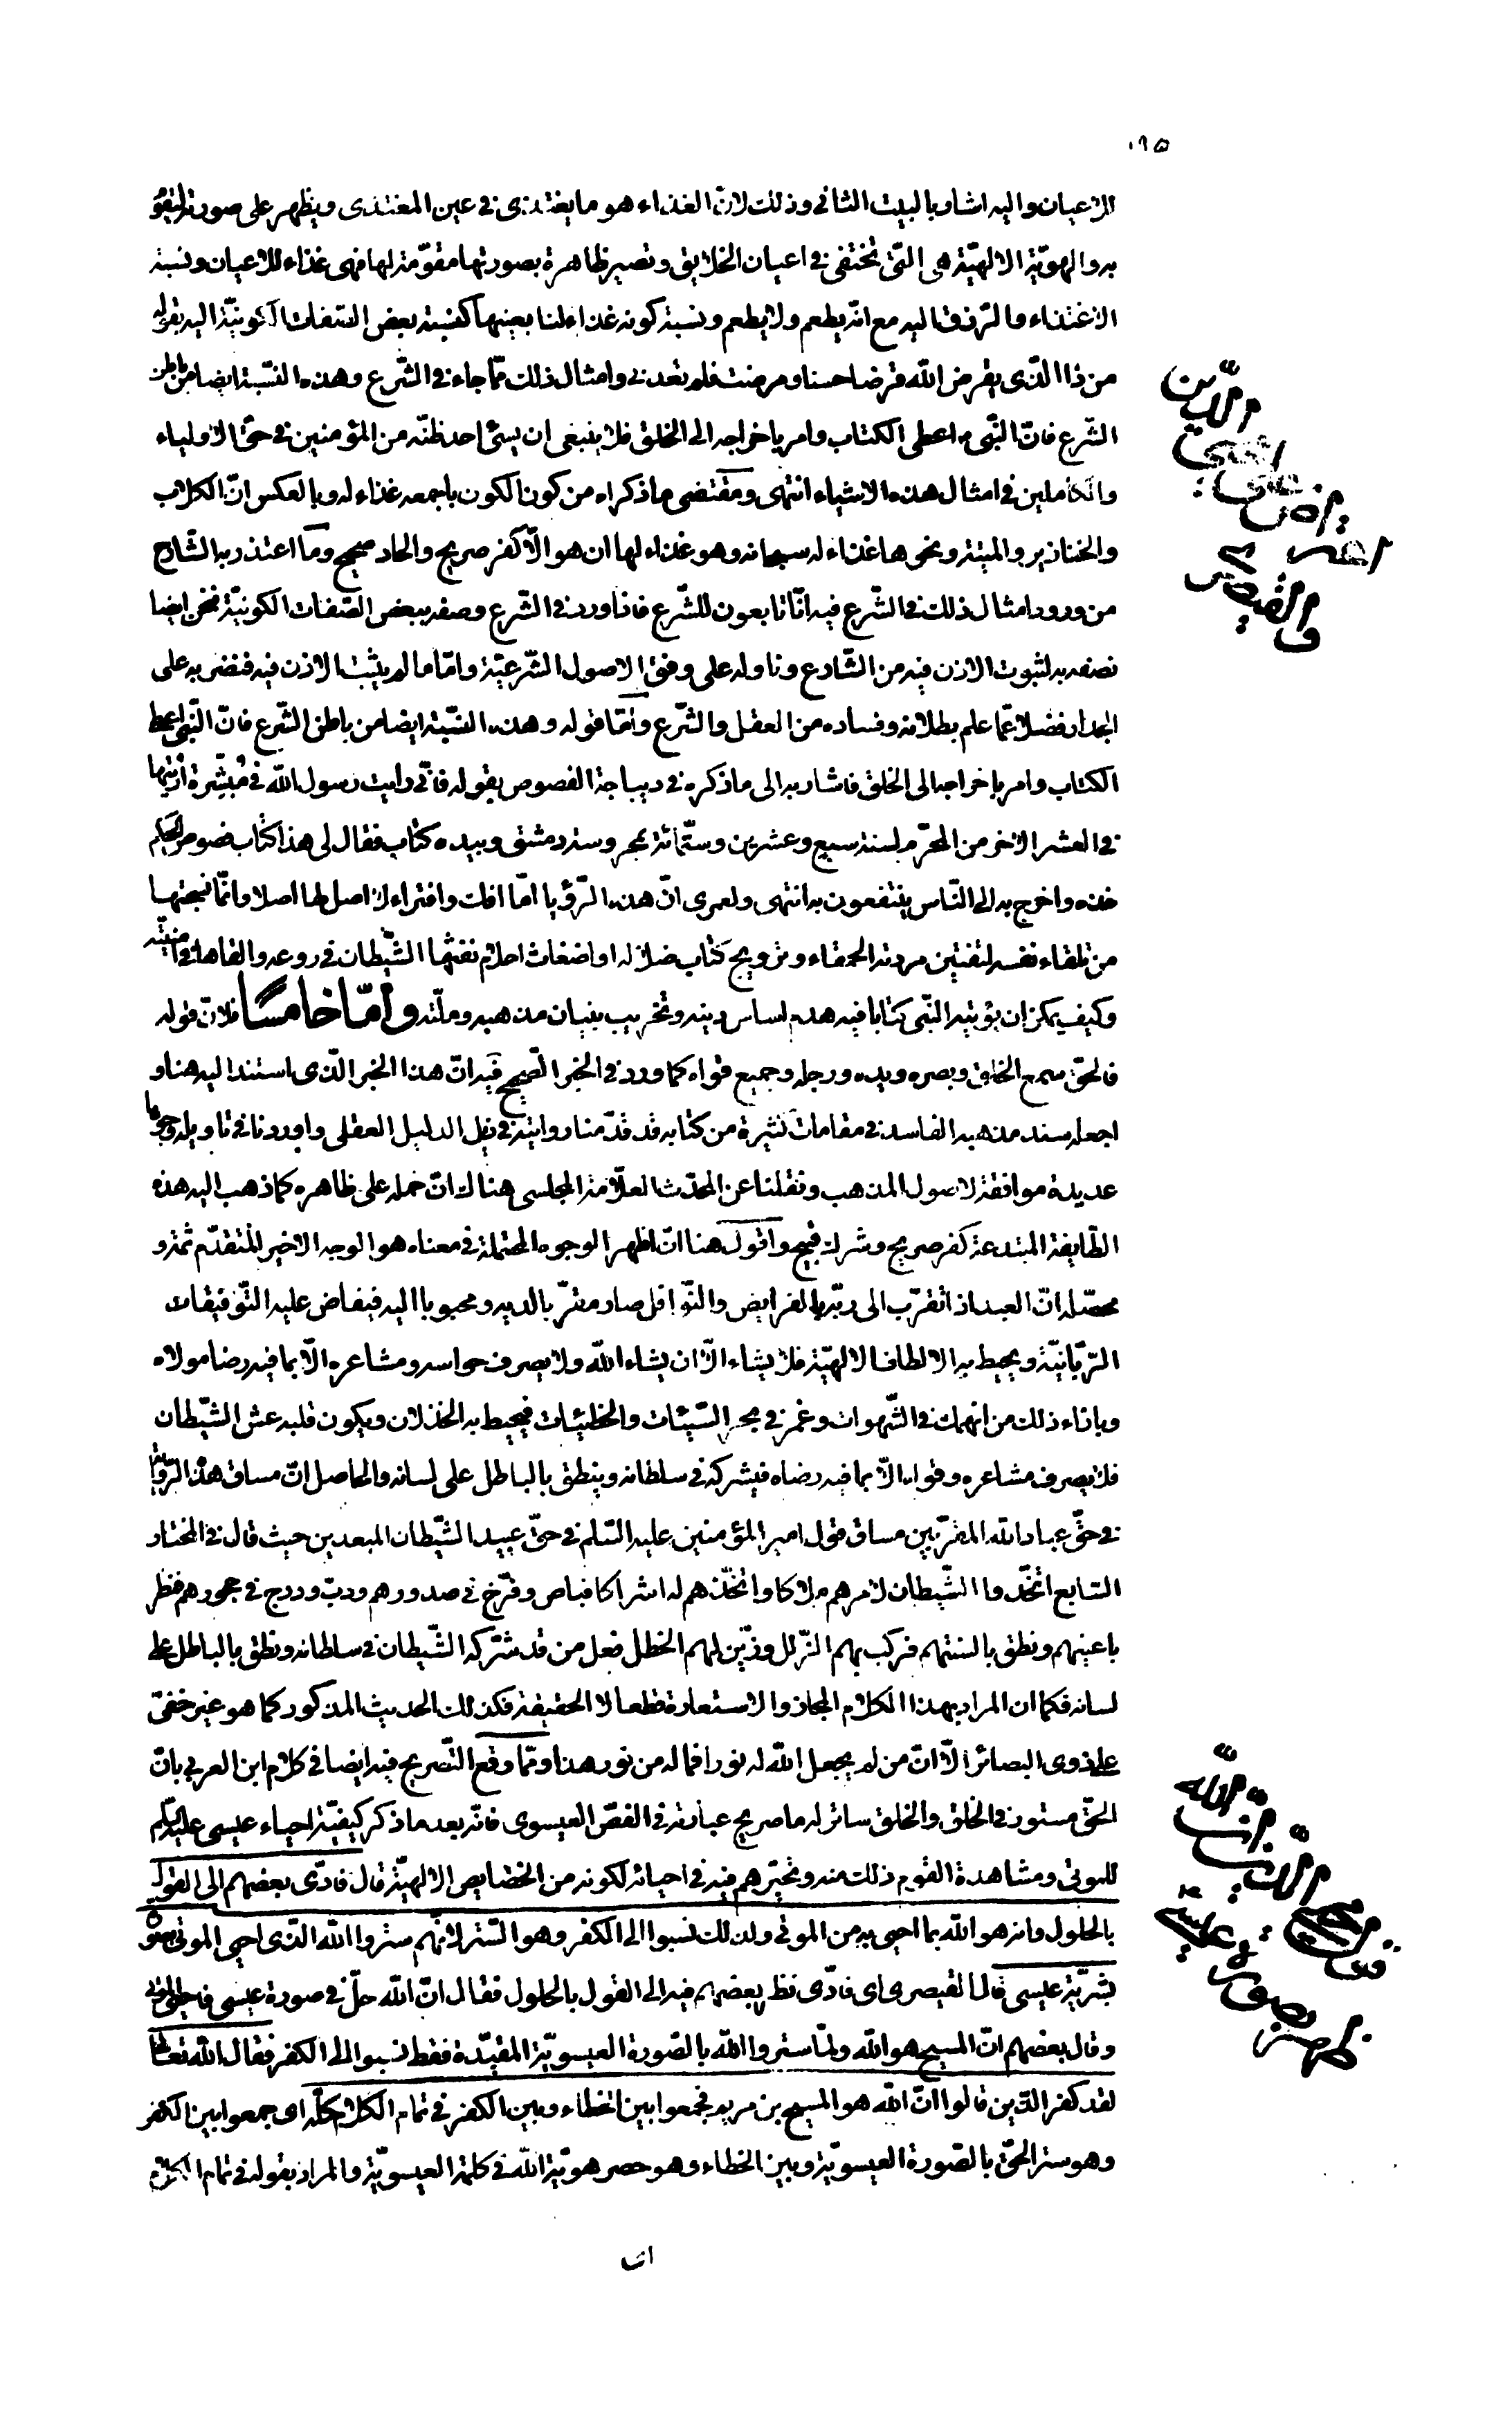 ١٩٥
الاعيان واليه اشار بالبيت الثانى وذلك لانّ الغذاء هو ما يغتذى فى عين المغتذى ويظهر على صورته ليتقوّ
به والهويّة الالهيّة هى الّتى تختفى فى اعيان الخلايق وتصير ظاهرة بصورتها مقوّمة لها فهى غذاء للاعيان ونسبة
الاغتذاء والرّزق اليه مع انّه يطعم ولا يطعم ونسبة كونه غذاء لنا بعينها كنسبة بعض الصّفات الكونيّة اليه بقوله
من ذا الّذى يقرض الله قرضا حسنا ومرضت فلم تعدنى وامثال ذلك ممّا جاء فى الشّرع وهذه النّسبة ايضا من باطن
الشّرع فانّ النّبى ص اعطى الكتاب وامر باخراجه الى الخلق فلا ينبغى ان يسئ احد ظنّه من المؤمنين فى حقّ الاولياء
والكاملين فى امثال هذه الاشياء انتهى ومقتضى ما ذكراه من كون الكون باجمعه غذاء له وبالعكس انّ الكلاب
والخنازير والميتة ونحوها غذاء له سبحانه وهو غذاء لها ان هو الّا كفر صريح والحاد صحيح وما اعتذر به الشّارح
من ورود امثال ذلك فى الشّرع فيه انّا تابعون للشّرع فاذا ورد فى الشّرع وصفه ببعض الصّفات الكونيّة نحن ايضا
نصفه به لثبوت الاذن فيه من الشّارع وناوله على وفق الاصول الشّرعيّة وامّا ما لم يثبت الاذن فيه فنضربه على
الجدار فضلا عمّا علم بطلانه وفساده من العقل والشّرع وامّا قوله وهذه النّسبة ايضا من باطن الشّرع فانّ النّبى اعطى
الكتاب وامر باخراجه الى الخلق فاشار به الى ما ذكره فى ديباجة الفصوص بقوله فانّى رايت رسول الله فى مُبشِّرة اُريتها
فى العشر الاخر من المحرّم لسنة سبع وعشرين وستّمائة بمحروسة دمشق وبيده كتاب فقال لى هذا كتاب فصوص الحكم
خذه واخرج به الى النّاس ينتفعون به انتهى ولعمرى انّ هذه الرّؤيا امّا افك وافتراء لا اصل لها اصلا وانّما نسجتها
من تلقاء نفسه لتفتين مردته الحمقاء وترويج كتاب ضلاله او اضغاث احلام نفثها الشّيطان فى روعه والقاها فى امنيّته
وكيف يمكن ان يؤتيه النّبى كتابا فيه هدم اساس دينه وتخريب بنيان مذهبه وملّته وأمّا خامسًا فلانّ قوله
فالحقّ سمع الخلق وبصره ويده ورجله وجميع قواه كما ورد فى الخبر الصّحيح فيه انّ هذا الخبر الّذى استند اليه هنا و
اجعله سند مذهبه الفاسد فى مقامات كثيرة من كتابه قد قدّمنا روايته فى ذيل الدليل العقلى واوردنا فى تاويله وجوها
عديدة موافقة لاصول المذهب ونقلنا عن المحدّث العلّامة المجلسى هناك انّ حمله على ظاهره كما ذهب اليه هذه
الطّايفة المبتدعة كفر صريح وشرك قبيح واقول هنا انّ اظهر الوجوه المحتملة فى معناه هو الوجه الاخير المتقدّم ثمّة و
محصّله انّ العبد اذا تقرّب الى ربّه بالفرايض والنّوافل صار مقرّبا لديه ومحبوبا اليه فيفاض عليه التّوفيقات
الرّبّانيّة ويحيط به الالطاف الالهيّة فلا يشاء الّا ان يشاء الله ولا يصرف حواسه ومشاعره الّا بما فيه رضا مولاه
وباذاء ذلك من انهمك فى الشّهوات وغمر فى بحر السّيئات والخطيئات فيحيط به الخذلان ويكون قلبه عش الشّيطان
فلا يصرف مشاعره وقواه الّا بما فيه رضاه فيشركه فى سلطانه وينطق بالباطل على لسانه والحاصل انّ مساق هذه الرّواية
فى حقّ عباد الله المقرّبين مساق قول امير المؤمنين عليه السّلم فى حقّ عبيد الشّيطان المبعدين حيث قال فى المختار
السّابع اتّخذوا الشّيطان لامرهم ملاكا واتّخذهم له اشراكا فباض وفرّخ فى صدورهم ودبّ ودرج فى حجورهم فنظر
باعينهم ونطق بالسنتهم فركب بهم الزّلل وزيّن لهم الخطل فعل من قد شرّكه الشّيطان فى سلطانه ونطق بالباطل على
لسانه فكما ان المراد بهذا الكلام المجاز والاستعارة قطعا لا الحقيقة فكذلك الحديث المذكور كما هو غير خفىّ
على ذوى البصائر الّا انّ من لم يجعل الله له نورا فما له من نور هذا وممّا وقع التّصريح فيه ايضا فى كلام ابن العربى بانّ
الحقّ مستور فى الخلق والخلق ساتر له ما صريح عبارته فى الفصّ العيسوى فانّه بعد ما ذكر كيفيّة احياء عيسى عليه السّلم
للموتى ومشاهدة القوم ذلك منه وتحيّرهم فيه فى احيائه لكونه من الخصايص الالهيّة قال فادّى بعضهم الى القول
بالحلول وانه هو الله بما احيى به من الموتى ولذلك نسبوا الى الكفر وهو السّتر لانّهم ستروا الله الّذى احيى الموتى بصورة
بشريّة عيسى قال القيصرى اى فادّى نظر بعضهم فيه الى القول بالحلول فقال انّ الله حلّ فى صورة عيسى فاحيى الموتى
وقال بعضهم انّ المسيح هو الله ولمّا ستروا الله بالصّورة العيسويّة المقيّدة فقط نسبوا الى الكفر فقال الله تعالى
لقد كفر الذين قالوا انّ الله هو المسيح بن مريم فجمعوا بين الخطاء وبين الكفر فى تمام الكلام كلّه اى جمعوا بين الكفر
وهو ستر الحقّ بالصّورة العيسويّة وبين الخطاء وهو حصر هويّة الله فى كلمة العيسويّة والمراد بقوله فى تمام الكلام
والقيصرى